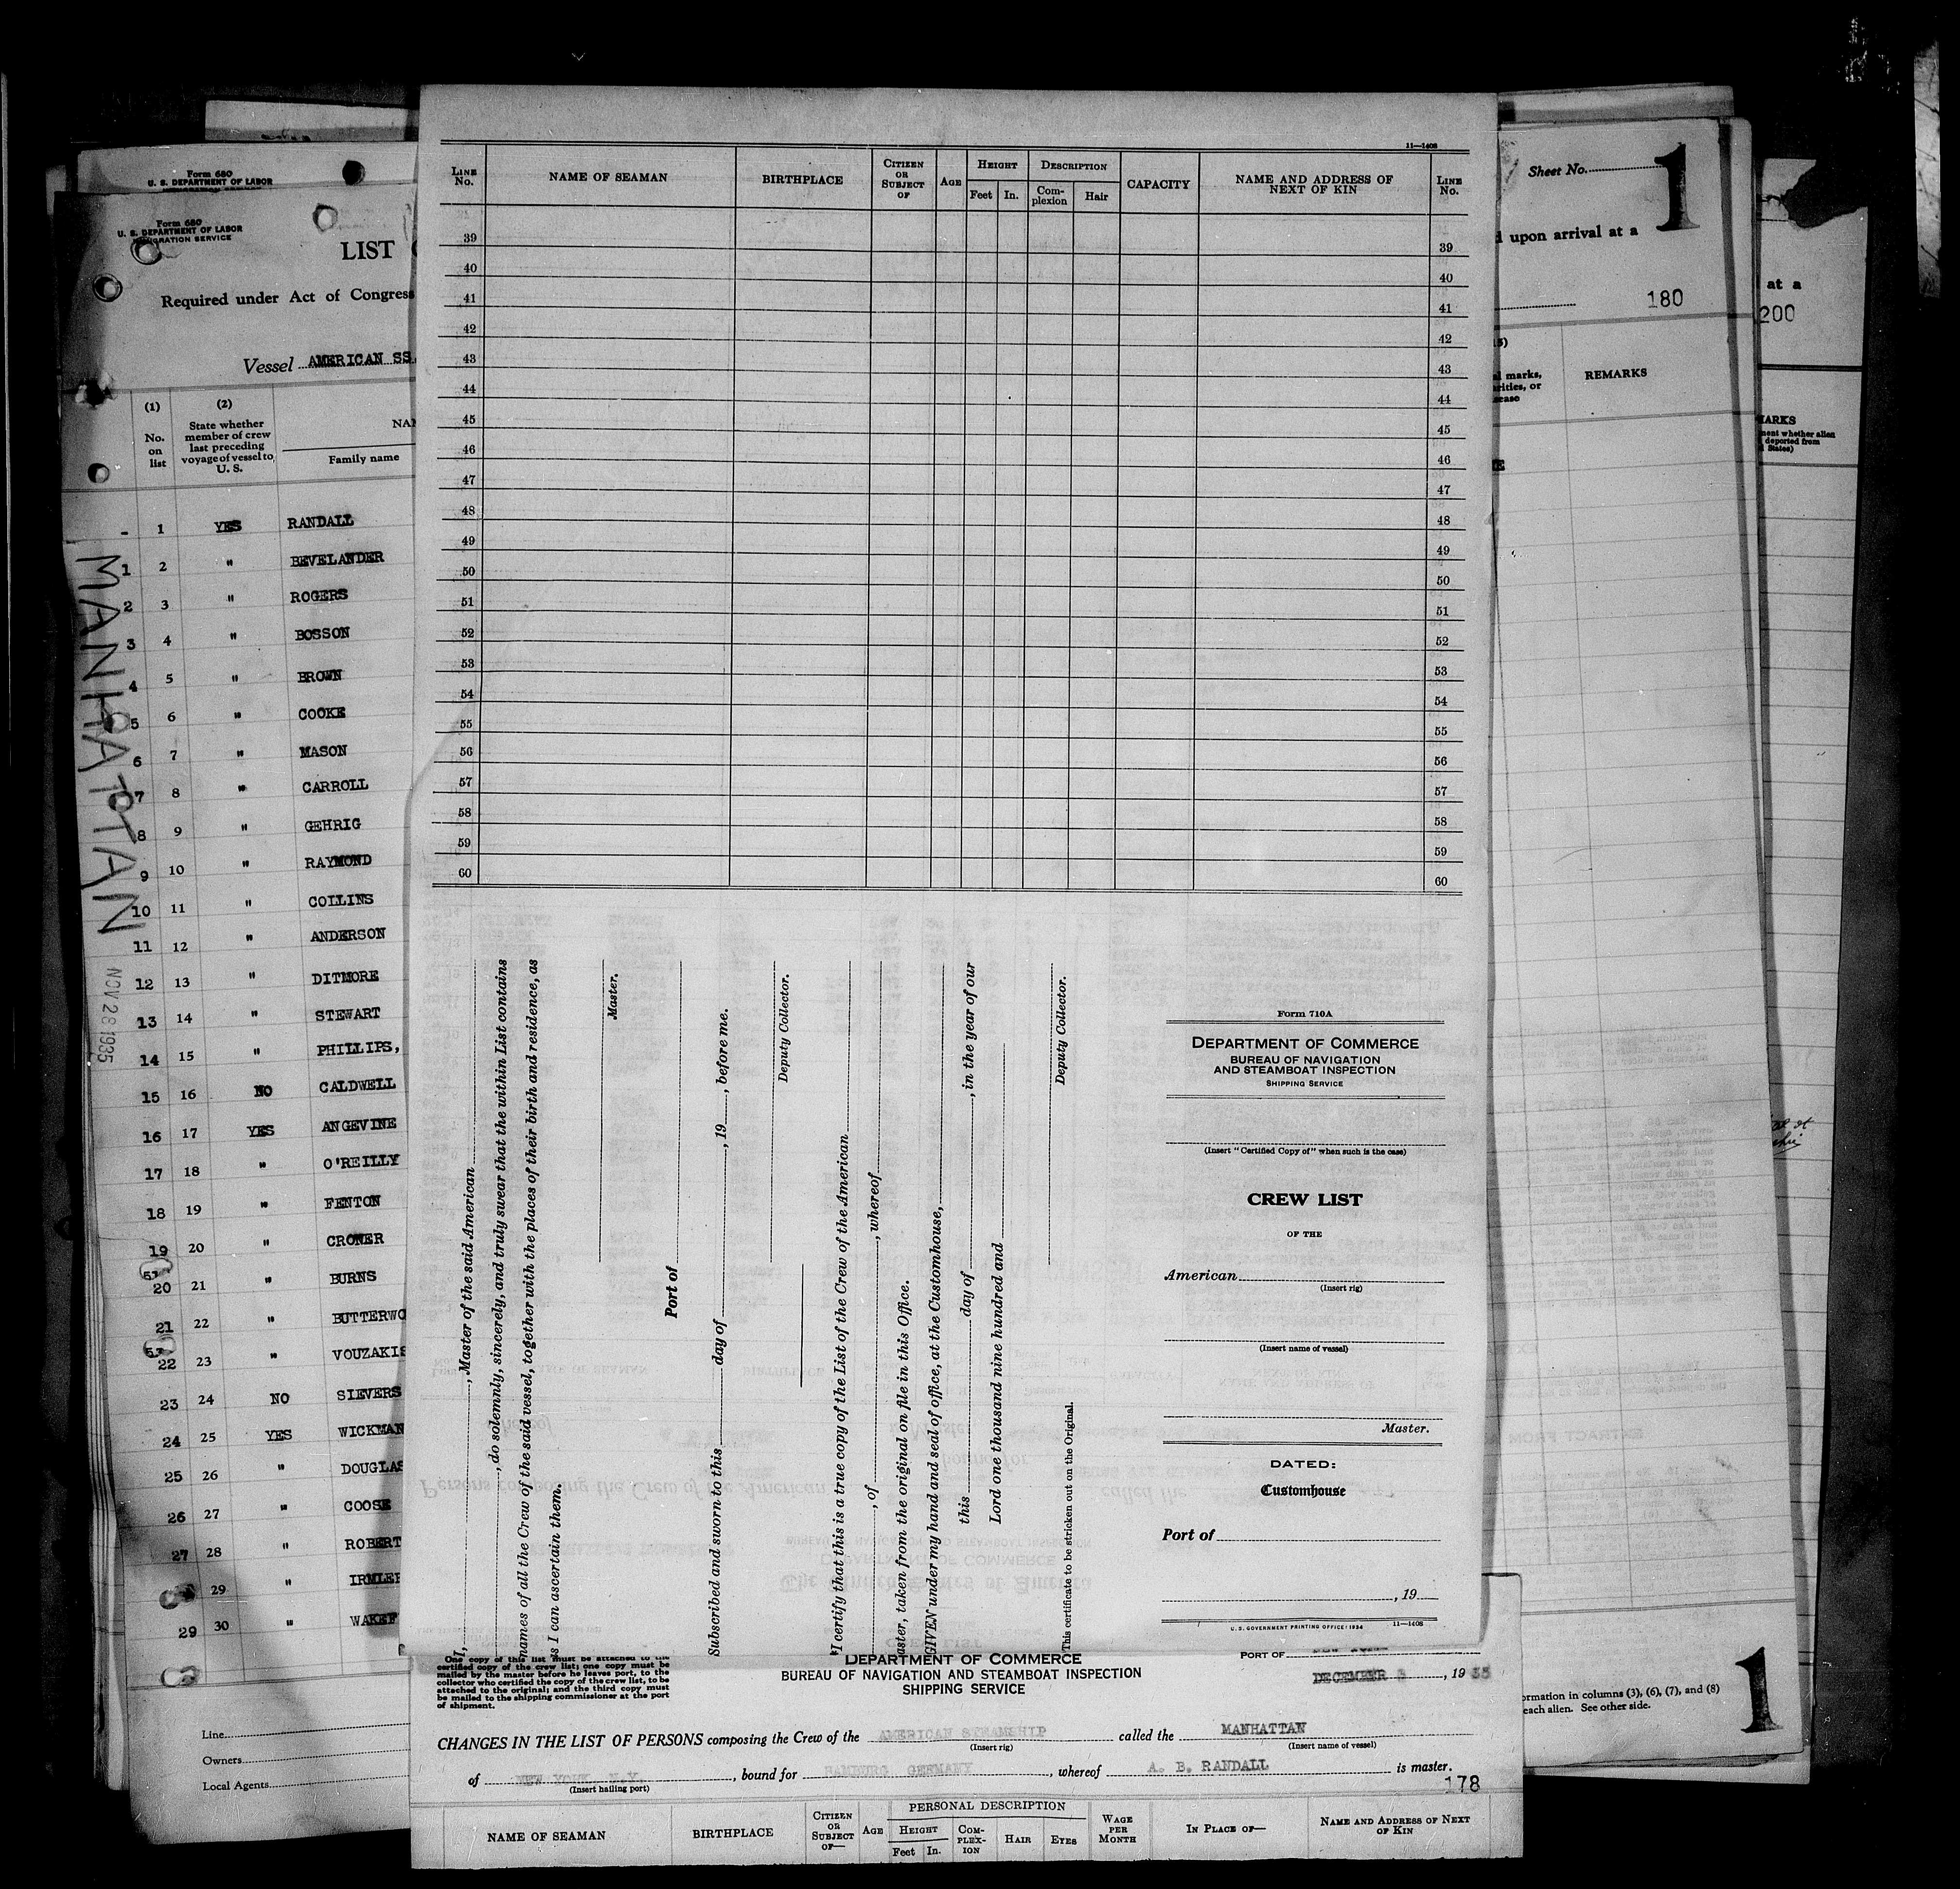 Form 680
U. S. DEPARTMENT OF LABOR
Form 680
U. S. DEPARTMENT OF LABOR
IMMIGRATION SERVICE
LIST
Required under Act of Congress
Vessel AMERICAN SS.
(1) (2)
No. on list
State whether member of crew last preceding voyage of vessel to U. S.
Family name
- 1 YES RANDALL
1 2 " BEVELANDER
2 3 " ROGERS
3 4 " BOSSON
4 5 " BROWN
5 6 " COOKE
6 7 " MASON
7 8 " CARROLL
8 9 " GEHRIG
9 10 " RAYMOND
10 11 " COLLINS
11 12 " ANDERSON
12 13 " DITMORE
13 14 " STEWART
14 15 " PHILLIPS,
15 16 NO CALDWELL
16 17 YES ANGEVINE
17 18 " O'REILLY
18 19 " FENTON
19 20 " CRONER
20 21 " BURNS
21 22 " BUTTERWO
22 23 " VOUZAKIS
23 24 NO SIEVERS
24 25 YES WICKMAN
25 26 " DOUGLAS
26 27 " COOSE
27 28 " ROBERT
29 " IRMLER
29 30 " WAKEF
MANHATTAN
NOV 28 1935
Line
Owners
Local Agents
11—1408
LINE No. NAME OF SEAMAN BIRTHPLACE CITIZEN OR SUBJECT OF AGE HEIGHT Feet In. DESCRIPTION Complexion Hair CAPACITY NAME AND ADDRESS OF NEXT OF KIN LINE No.
39 39
40 40
41 41
42 42
43 43
44 44
45 45
46 46
47 47
48 48
49 49
50 50
51 51
52 52
53 53
54 54
55 55
56 56
57 57
58 58
59 59
60 60
I, , Master of the said American
, do solemnly, sincerely, and truly swear that the within List contains
names of all the Crew of the said vessel, together with the places of their birth and residence, as
s I can ascertain them.
Master.
Port of
Subscribed and sworn to this day of , 19 , before me.
Deputy Collector.
*I certify that this is a true copy of the List of the Crew of the American
, of , whereof
aster, taken from the original on file in this Office.
GIVEN under my hand and seal of office, at the Customhouse,
this day of , in the year of our
Lord one thousand nine hundred and
Deputy Collector.
*This certificate to be stricken out on the Original.
Form 710A
DEPARTMENT OF COMMERCE
BUREAU OF NAVIGATION
AND STEAMBOAT INSPECTION
SHIPPING SERVICE
(Insert "Certified Copy of" when such is the case)
CREW LIST
OF THE
American
(Insert rig)
(Insert name of vessel)
Master.
DATED:
Customhouse
Port of
, 19
U. S. GOVERNMENT PRINTING OFFICE: 1934 11—1408
Sheet No. 1
upon arrival at a
180
at a
200
REMARKS
ormation in columns (3), (6), (7), and (8)
each alien. See other side.
1
One copy of this list must be attached to the
certified copy of the crew list; one copy must be
mailed by the master before he leaves port, to the
collector who certified the copy of the crew list, to be
attached to the original; and the third copy must
be mailed to the shipping commissioner at the port
of shipment.
DEPARTMENT OF COMMERCE
BUREAU OF NAVIGATION AND STEAMBOAT INSPECTION
SHIPPING SERVICE
PORT OF
DECEMBER 3, 1935
CHANGES IN THE LIST OF PERSONS composing the Crew of the AMERICAN STEAMSHIP called the MANHATTAN
(Insert rig) (Insert name of vessel)
of NEW YORK N.Y. , bound for HAMBURG GERMANY , whereof A. B. RANDALL is master.
(Insert hailing port)
178
NAME OF SEAMAN BIRTHPLACE CITIZEN OR SUBJECT OF— AGE PERSONAL DESCRIPTION HEIGHT Feet In. COMPLEXION HAIR EYES WAGE PER MONTH IN PLACE OF— NAME AND ADDRESS OF NEXT OF KIN